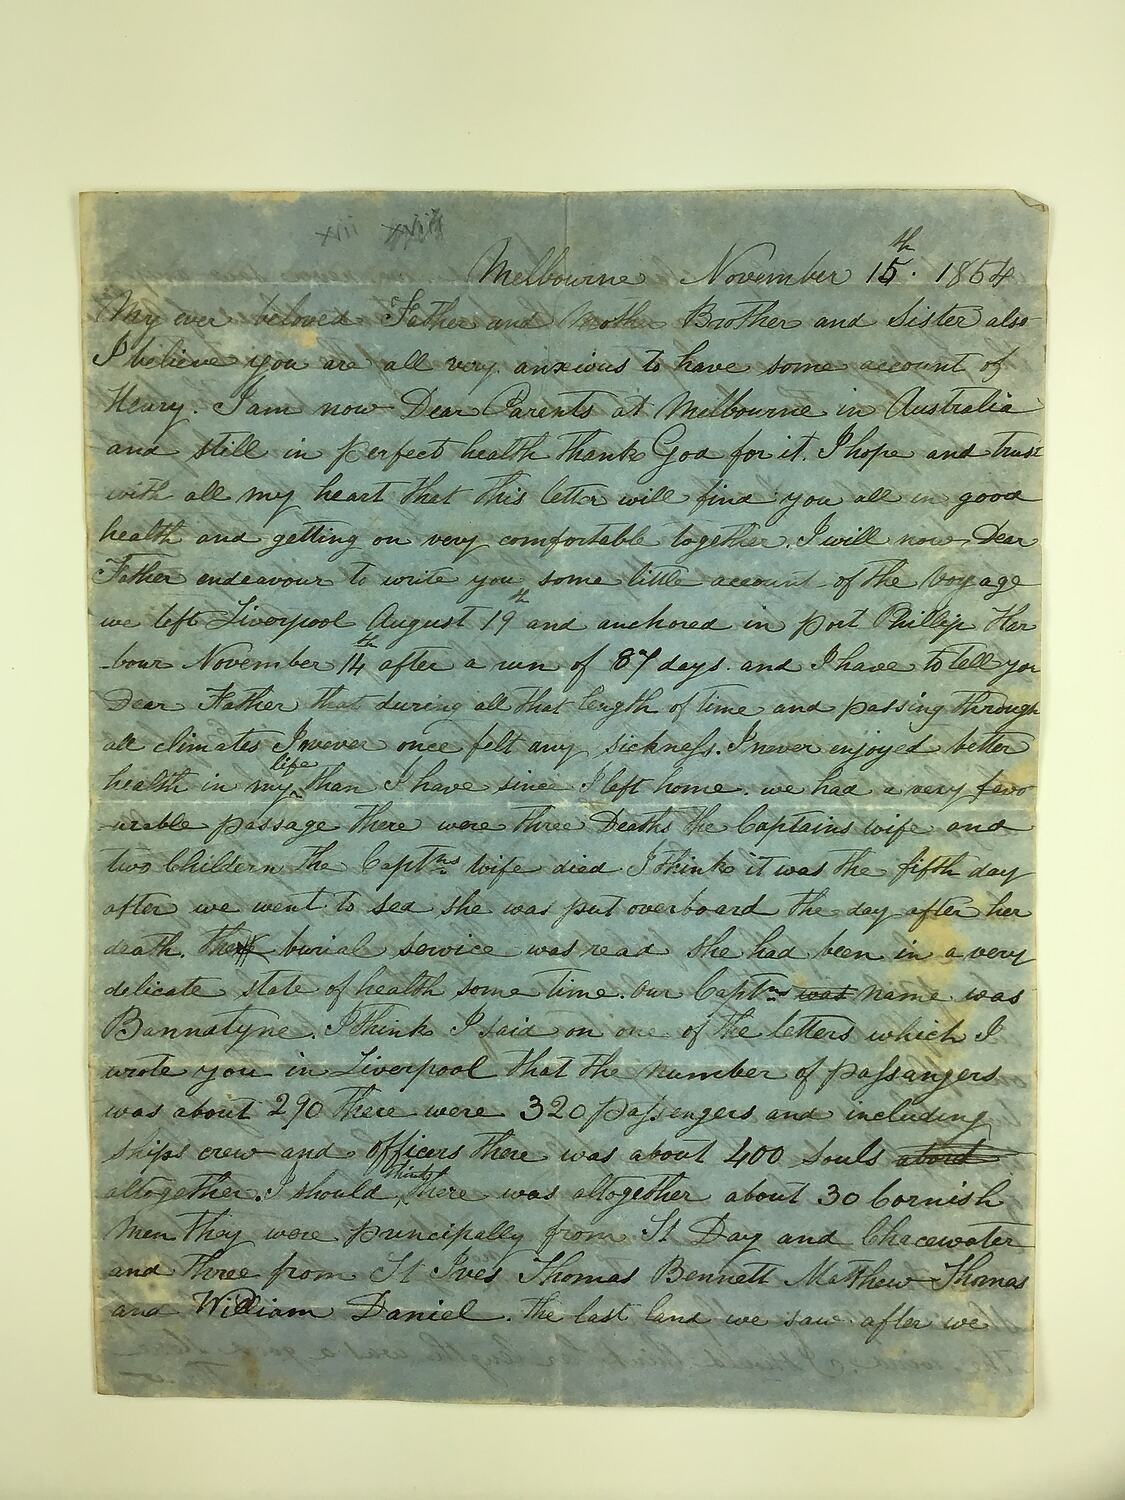 xiii
Melbourne November 15th. 1854
My ever beloved Father and Mother Brother and Sister also
I believe you are all very anxious to have some account of
Henry. I am now Dear Parents at Melbourne in Australia
and still in perfect health thank God for it. I hope and trust
with all my heart that this letter will find you all in good
health and getting on very comfortable together. I will now Dear
Father endeavour to write you some little account of the Voyage
we left Liverpool August 19th and anchored in port Phillip Har
-bour November 14th after a run of 87 days. and I have to tell you
Dear Father that during all that length of time and passing through
all climates I never once felt any sickness. I never enjoyed better
health in my life than I have since I left home. we had a very favo
-urable passage there were three Deaths the Captains wife and
two Childern the Captns wife died I think it was the fifth day
after we went to sea she was put overboard the day after her
death. the burial service was read she had been in a very
delicate state of health some time. our Captns was name was
Bannatyne. I think I said on one of the letters which I
wrote you in Liverpool that the number of passangers
was about 290 there were 320 passengers and including
ships crew and officers there was about 400 souls about
altogether. I should think there was altogether about 30 Cornish
men they were principally from St Day and Chacewater
and three from St Ives Thomas Bennett Mathew Thomas
and William Daniel. the last land we saw after we